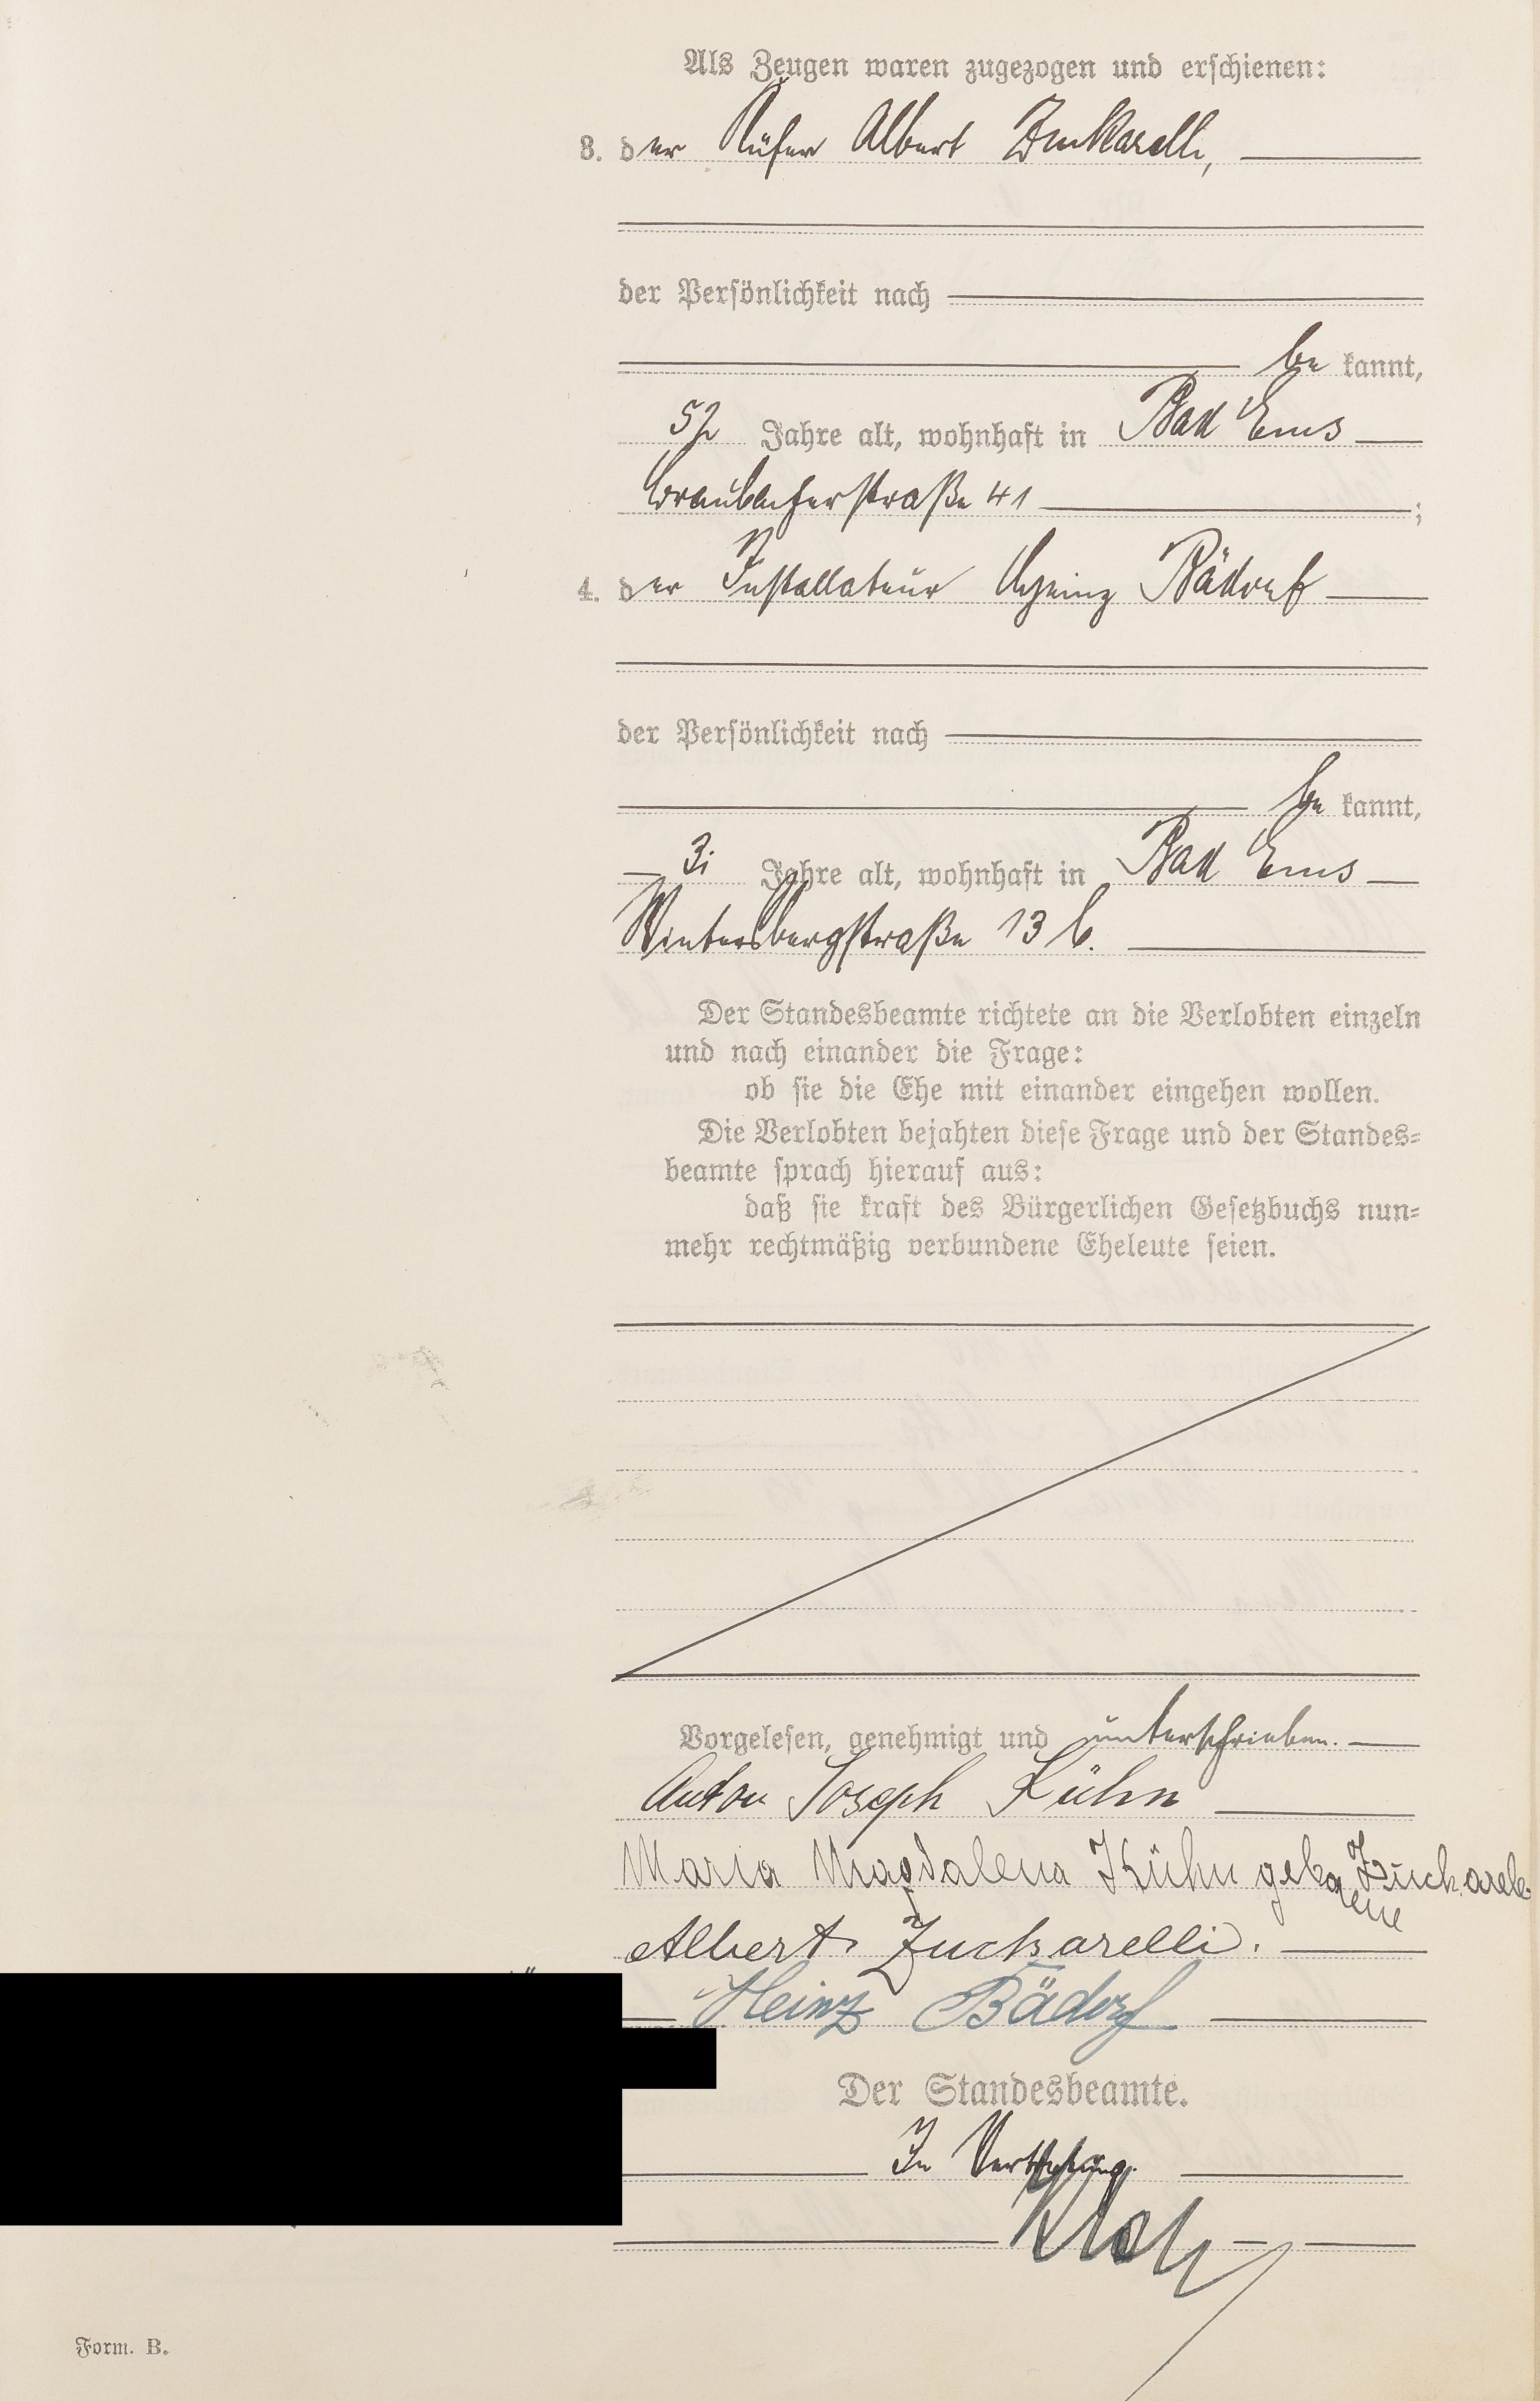 Als Zeugen waren zugezogen und erschienen:
3. der Küfer Albert Zuckarelli,
der Persönlichkeit nach
be kannt,
52 Jahre alt, wohnhaft in Bad Ems
Braubacherstraße 41 ;
4. der Installateur Heinz Bädorf
der Persönlichkeit nach
be kannt,
31 Jahre alt, wohnhaft in Bad Ems
Wintersbergstraße 13 b.
Der Standesbeamte richtete an die Verlobten einzeln
und nach einander die Frage:
ob sie die Ehe mit einander eingehen wollen.
Die Verlobten bejahten diese Frage und der Standes-
beamte sprach hierauf aus:
daß sie kraft des Bürgerlichen Gesetzbuchs nun-
mehr rechtmäßig verbundene Eheleute seien.
Vorgelesen, genehmigt und unterschrieben.
Anton Joseph Kühn
Maria Magdalena Kühn geborene Zuckarelli
Albert Zuckarelli.
Heinz Bädorf
Der Standesbeamte.
In Vertretung.
Form. B.